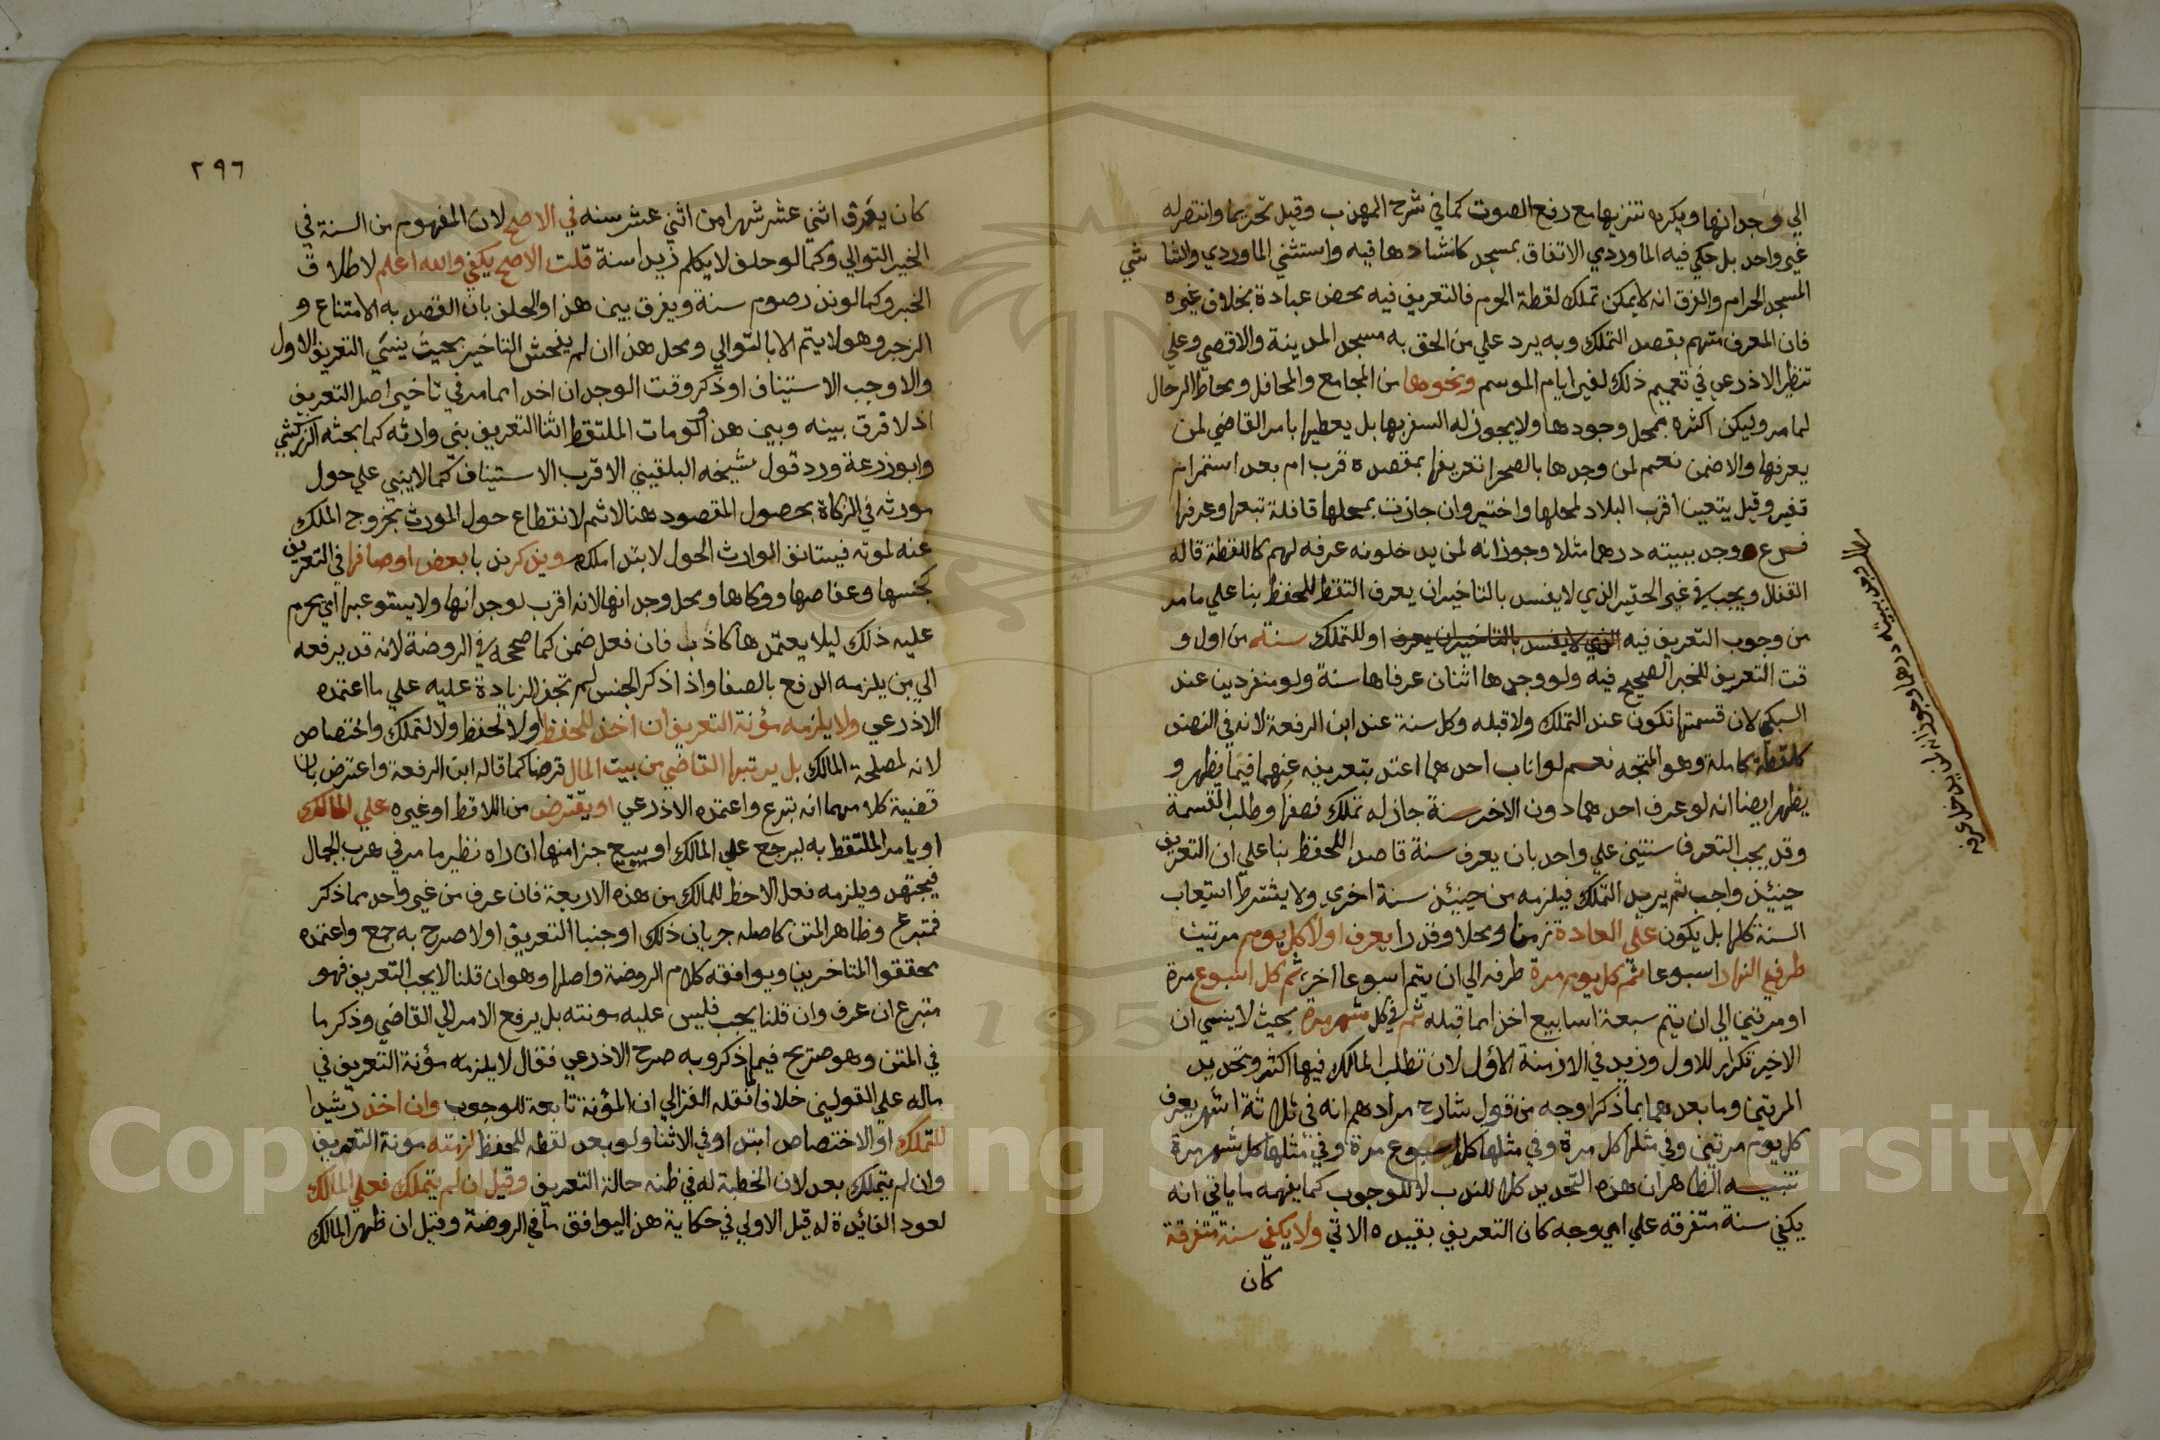 الي وجدانها ويكره تنزيها مع رفع الصوت كما في شرح المهذب وقيل تحريما وانتصر له
غير واحد بل حكي فيه الماوردي الاتفاق بمسجد كانشادها فيه واستثني الماوردي والشا شي
المسجد الحرام والفرق انه لا يمكن تملك لقطة الحرم فالتعريف فيه محض عبادة بخلاف غيره
فان المعرف متهم بقصد التملك وبه يرد علي من الحق به مسجد المدينة والاقصي وعلي
تنظير الاذرعي في تعميم ذلك لغير ايام الموسم ونحوها من المجامع والمحافل ومحاط الرحال
لما مر وليكن اكثره بمحل وجودها ولا يجوز له السفر بها بل يعطيها بامر القاضي لمن
يعرفها والا ضمن نعم لمن وجدها بالصحرا تعريفها بمقصده قرب ام بعد استمر ام
تغير وقيل يتعين اقرب البلاد لمحلها واختير وان جازت بمحلها قافلة تبعها وعرفها
فرع وجد ببيته درهما مثلا وجوز انه لمن يدخلونه عرفه لهم كاللقطة قاله
القفال ويجب في غير الحقير الذي لا يفسد بالتاخير ان يعرف التقط للحفظ بنا علي ما مر
من وجوب التعريف فيه الذي لا يفسد بالتاخير ان يعرف او للتملك سنة من اول و
قت التعريف للخبر الصحيح فيه ولو وجدها اثنان عرفاها سنة ولو منفردين عند
السبكي لان قسمتها تكون عند التملك ولا قبله وكل سنة عند ابن الرفعة لانه في النصف
كلقطة كاملة وهو المتجه نعم لو اناب احدهما اعتد بتعريفه عنهما فيما يظهر و
يظهر ايضا انه لو عرف احدهما دون الاخر سنة جاز له تملك نصفها وطلب القسمة
وقد يجب التعرف سنتين علي واحد بان يعرف سنة قاصدا للحفظ بنا علي ان التعريف
حينئذ واجب ثم يريد التملك فيلزمه من حينئذ سنة اخري ولا يشترط استعاب
السنة كلها بل يكون علي العادة زمنا ومحلا وقدرا يعرف اولا كل يوم مرتين
طرفي النهار اسبوعا ثم كل يوم مرة طرفه الي ان يتم اسبوعا اخر ثم كل اسبوع مرة
او مرتين الي ان يتم سبعة اسابيع اخذا مما قبله ثم في كل شهر مرة بحيث لا ينسي ان
الاخير تكرار للاول وزيد في الازمنة الاول لان تطلب المالك فيها اكثر وتحديد
المرتين وما بعدهما بما ذكر اوجه من قول شارح مرادهم انه في ثلاثة اشهر يعرف
كل يوم مرتين وفي مثلها كل مرة وفي مثلها كل اسبوع مرة وفي مثلها كل شهر مرة
تنبيه الظاهر ان هذه التحديد كلا للندب لا للوجوب كما يفهمه ما ياتي انه
يكفي سنة متفرقه علي اي وجه كان التعريف بقيده الاتي ولا يكفي سنة متفرقة
كان
وجد ببيته درهما وجوز انه لمن يدخل عرفه
٢٩٦
كان يفرق اثني عشر شهرا من اثني عشر سنه في الاصح لان المفهوم من السنة في
الخبر التوالي وكما لو حلف لا يكلم زيدا سنة قلت الاصح يكفي والله اعلم لاطلاق
الخبر وكما لو نذر صوم سنة ويفرق بين هذا والحلف بان القصد به الامتناع و
الزجر وهو لا يتم الا بالتوالي ومحل هذا ان لم يفحش التاخير بحيث ينسي التعريف الاول
والا وجب الاستيناف او ذكر وقت الوجدان اخذا مما مر في تاخير اصل التعريف
اذ لا فرق بينه وبين هذا ولو مات الملتقط اثنا التعريف بني وارثه كما بحثه الزركشي
وابو زرعة ورد قول شيخه البلقيني الاقرب الاستيناف كما لا يبني علي حول
مورثه في الزكاة بحصول المقصود هنا لا ثم لانقطاع حول المورث بخروج الملك
عنه لموته فيستانف الوارث الحول لابتدا ملكه ويذكر ندبا بعض اوصافها في التعريف
كجنسها وعفاصها ووكاها ومحل وجدانها لانه اقرب لوجدانها ولا يستوعبها اي يحرم
عليه ذلك ليلا يعتمدها كاذب فان فعل ضمن كما صححه في الروضة لانه قد يرفعه
الي من يلزمه الدفع بالصفا واذا ذكر الجنس لم تجز الزيادة عليه علي ما اعتمده
الاذرعي ولا يلزمه مؤنة التعريف ان اخذ للحفظ اولا لحفظ ولا لتملك واختصاص
لانه لمصلحة المالك بل يرتبها القاضي من بيت المال قرضا كما قاله ابن الرفعة واعترض بان
قضية كلامهما انه تبرع واعتمده الاذرعي او يقترض من اللاقط او غيره علي المالك
او يامر الملتقط به ليرجع علي المالك او يبيع جزا منها ان راه نظير ما مر في هرب الجمال
فيجتهد ويلزمه فعل الاحظ للمالك من هذه الاربعة فان عرف من غير واحد مما ذكر
فمتبرع وظاهر المتن كاصله جريان ذلك اوجبنا التعريف اولا صرح به جمع واعتمده
محققوا المتاخرين ويوافقه كلام الروضة واصلها وهو ان قلنا لا يجب التعريف فهو
متبرع ان عرف وان قلنا يجب فليس عليه مونته بل يرفع الامر الي القاضي وذكر ما
في المتن وهو صريح فيما ذكر وبه صرح الاذرعي فقال لا يلزمه مؤنة التعريف في
ماله علي القولين خلافا لما نقله الغزالي ان المؤنة تابعة للوجوب وان اخذ رشيدا
للتملك او الاختصاص ابتدا او في الاثنا ولو بعد لقطه للحفظ لزمته مونة التعريف
وان لم يتملك بعد لان الخطبة له في ظنه حالة التعريف وقيل ان لم يتملك فعلي المالك
لعود الفائدة له قيل الاولي في حكاية هذا ليوافق ما في الروضة وقيل ان ظهر المالك
Copyright © King Saud University
195